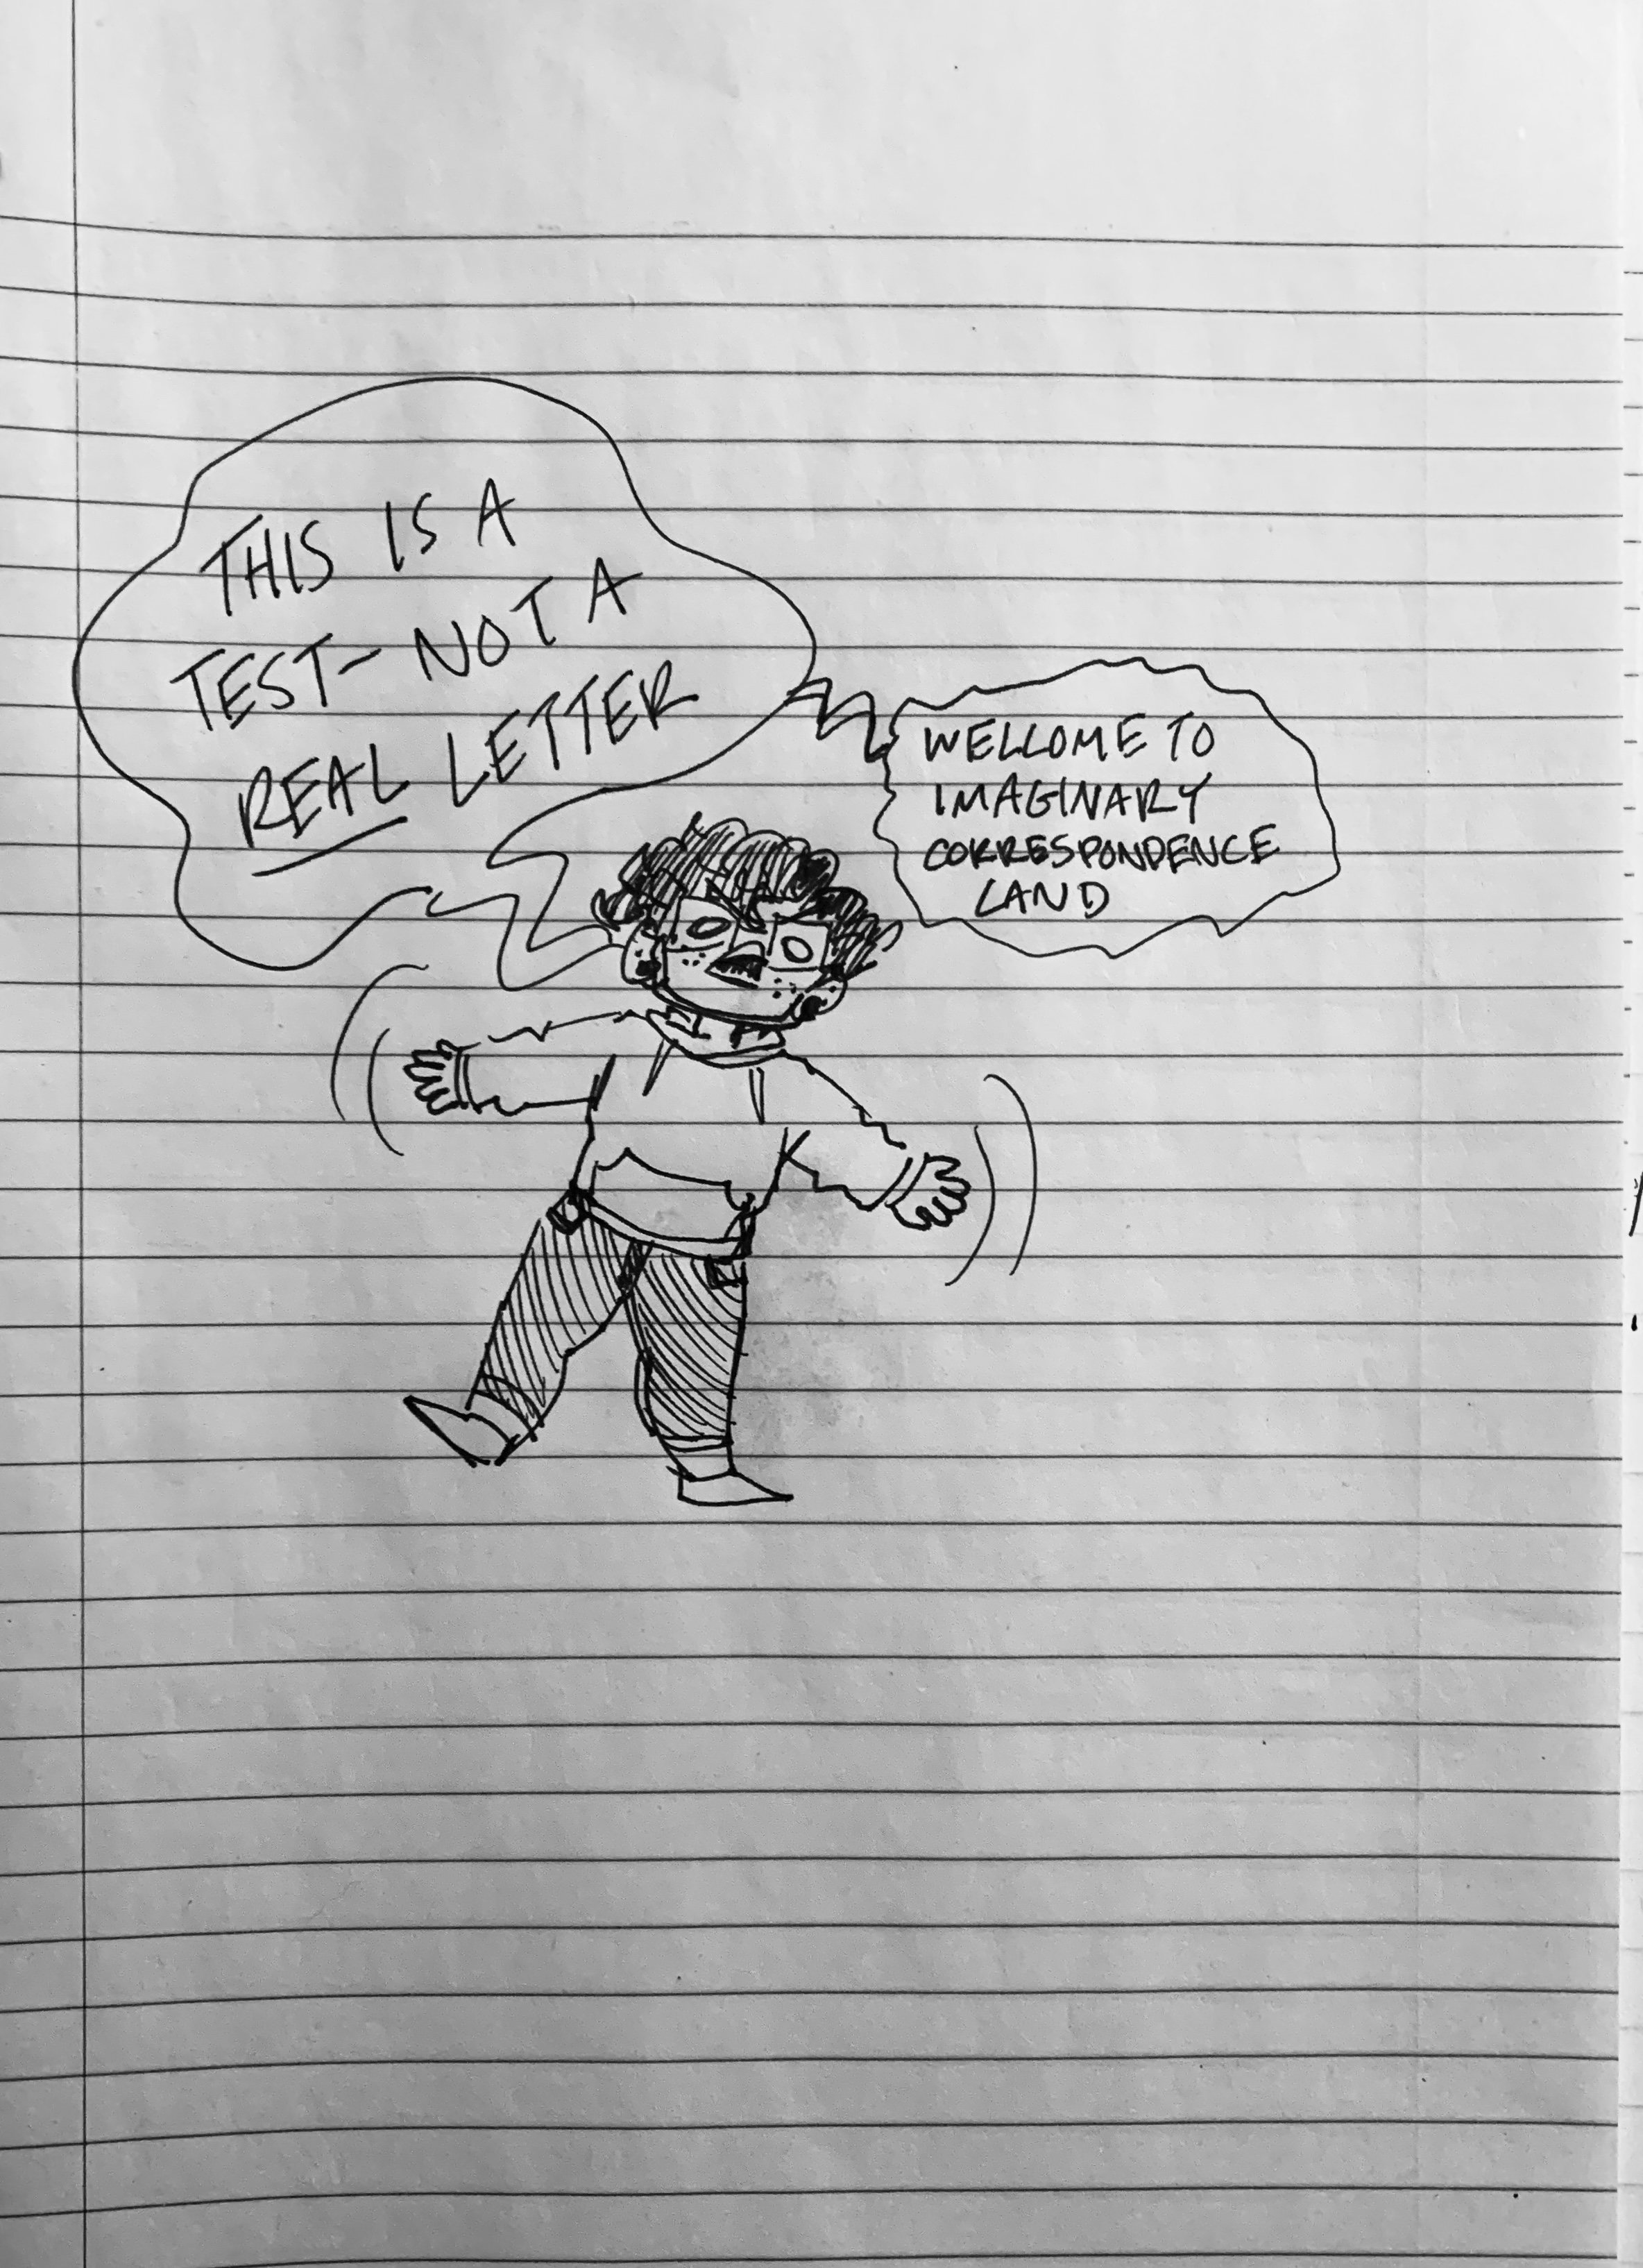 THIS IS A
TEST- NOT A
REAL LETTER
WELCOME TO
IMAGINARY
CORRESPONDENCE
LAND